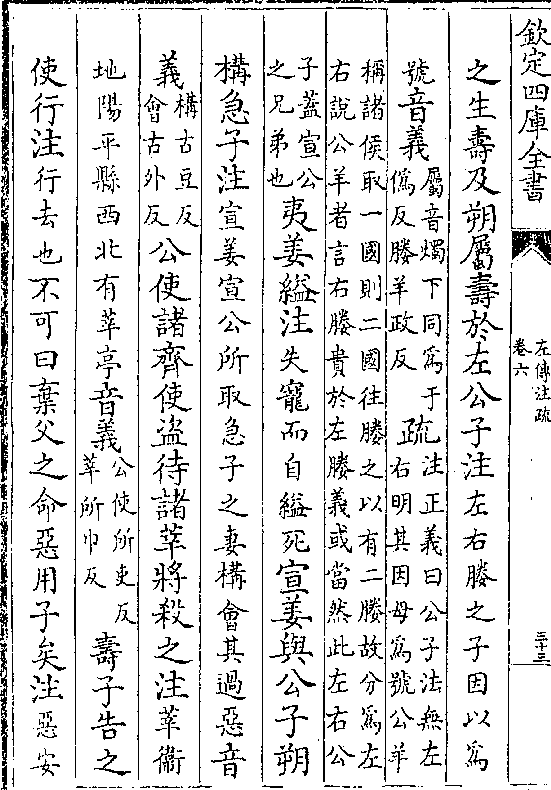 欽定四庫全書
左傳注疏
卷六
三十三
之生壽及朔屬壽於左公子注左右媵之子因以為
號音義屬音燭下同為于
偽反媵羊政反疏注正義曰公子法無左
右明其因母為號公羊
稱諸侯取一國則二國往媵之以有二媵故分為左
右說公羊者言右媵貴於左媵義或當然此左右公
子蓋宣公
之兄弟也夷姜縊注失寵而自縊死宣姜與公子朔
構急子注宣姜宣公所取急子之妻構會其過惡音
義構古豆反
會古外反公使諸齊使盗待諸莘將殺之注莘衞
地陽平縣西北有莘亭音義公使所吏反
莘所巾反壽子告之
使行注行去也不可曰棄父之命惡用子矣注惡安